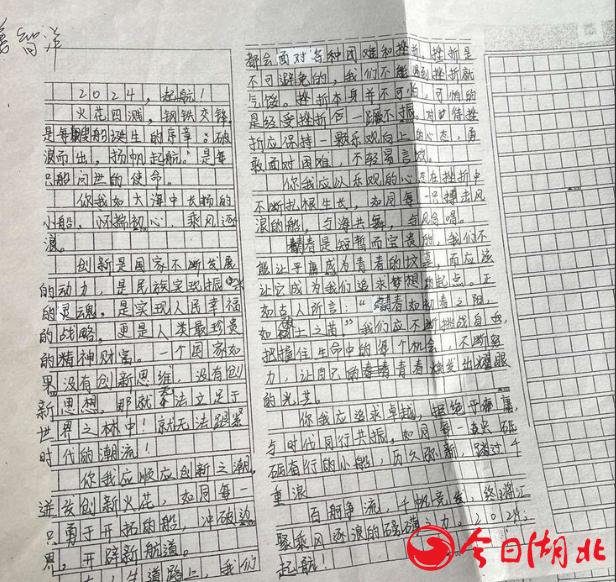 2024，起航！
火花四溅，钢铁交锋，
是每艘船诞生的序章；破
浪而出，扬帆起航，是每
只船问世的使命。
你我如大海中长扬的
小船，怀揣初心，乘风逐
浪。
创新是国家不断发展
的动力，是民族实现振
的灵魂，是实现人民幸福
的战略，更是人类最珍贵
的精神财富。一个国家如
果没有创新思维，没有创
新思想，那就无法立足于
世界之林中！就无法跟紧
时代的潮流！
你我应顺应创新之潮，
迸发创新火花，如同每一
只勇于开拓的船，冲破边
界，开辟新航道。
人生道路上，我们
都会面对各种困难和挫折，挫折是
不可避免的，我们不能遇到挫折就
气馁。挫折本身并不可怕，可怕的
是经受挫折后一蹶不振。对待挫
折应保持一颗乐观向上的心态，勇
敢面对困难，不轻易言败。
你我应以乐观的心态在挫折中
不断起根生长，如同每一只搏击风
浪的船，与海共舞，与风合唱。
青春是短暂而宝贵的，我们不
能让平庸成为青春的坟墓，而应该
让它成为我们追求梦想的起点。正
如古人所言：“青春如初春之阳，
如树土之苗”我们应不断挑战自我，
把握住生命中的每个机会，不断努
力，让自己的青春焕发出耀眼
的光芒。
你我应追求卓越，拒绝平庸，
与时代同行共振。如同每一艘
砥砺前行的小船，历久弥新，踏过千
重浪
百舸争流，千帆竞发，终将汇
聚乘风逐浪的磅礴力。2024，
起航！
今日湖北